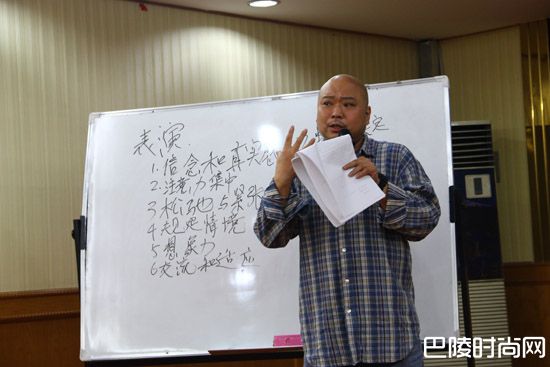 表演
1.信念和真实
2.注意力集中
3松弛与紧张
4规定情境
5想象力
6交流和适应
定
巴陵时尚网